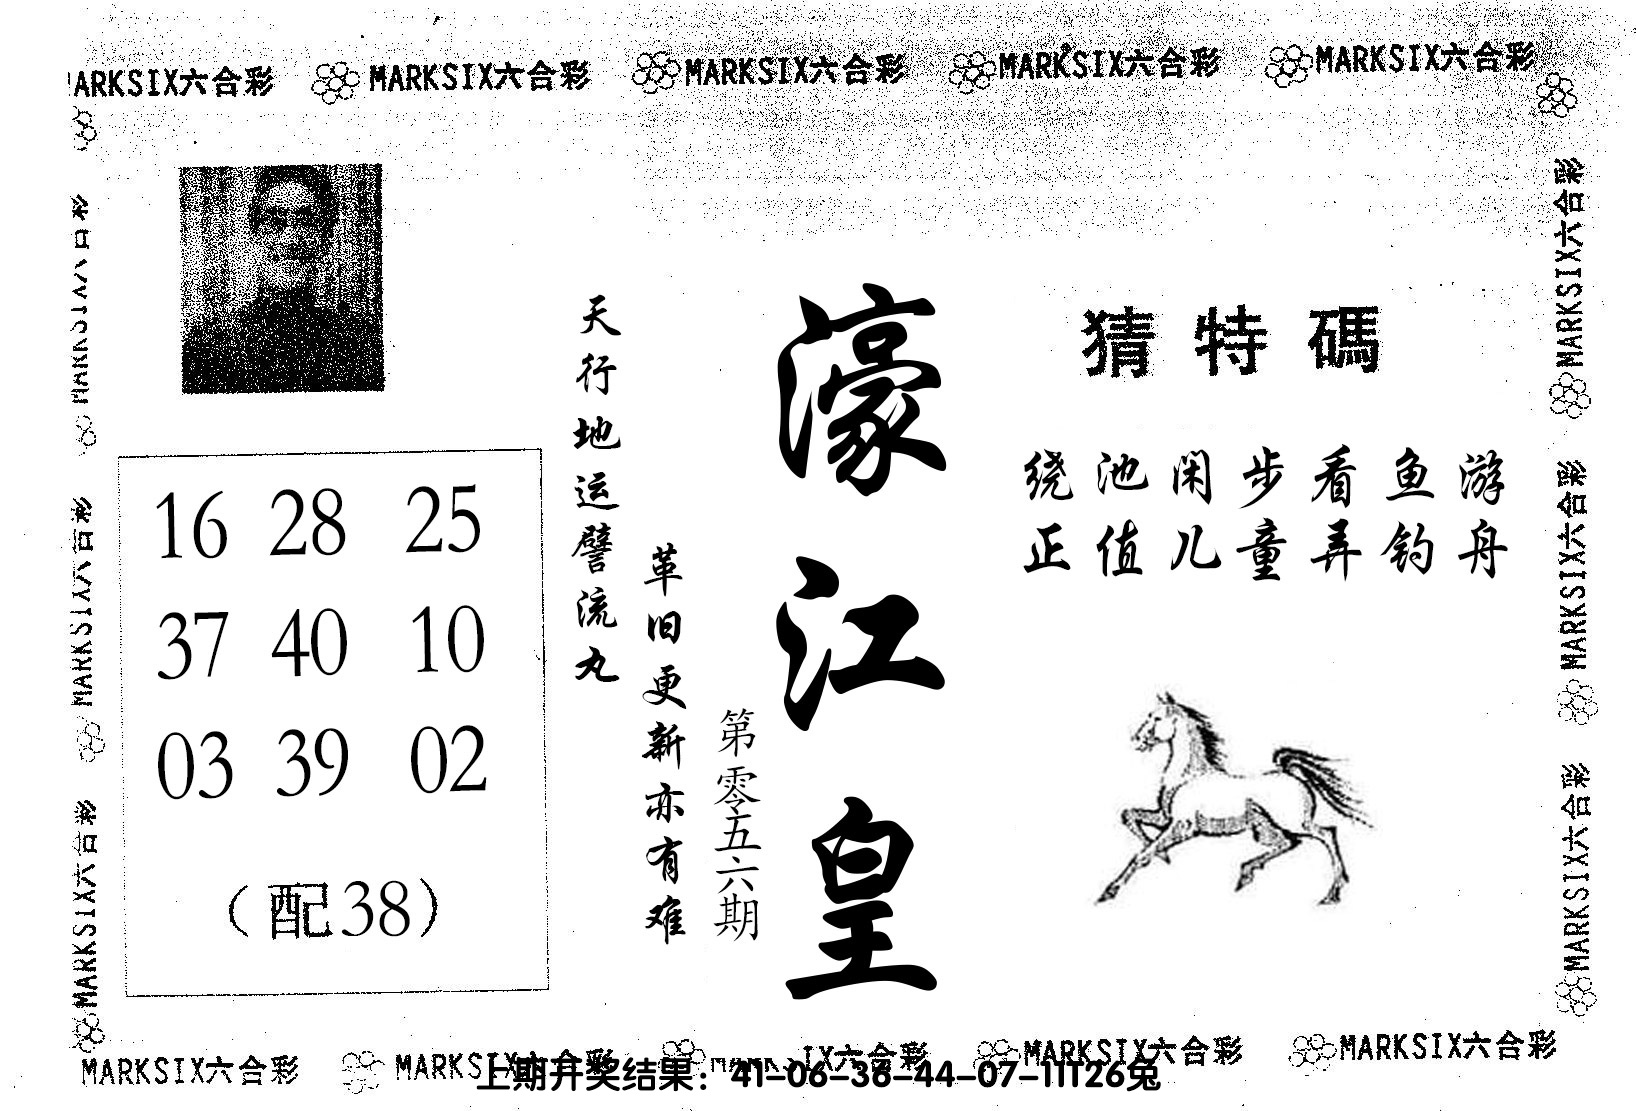 MARKSIX六合彩 MARKSIX六合彩 MARKSIX六合彩 MARKSIX六合彩
猜特碼
绕池闲步看鱼游
正值儿童弄钓舟
濠江皇
第零五六期
天行地运譬流丸
革旧更新亦有难
16 28 25
37 40 10
03 39 02
（配38）
MARKSIX六合彩
MARKSIX六合彩
MARKSIX六合彩
MARKSIX六合彩
MARKSIX六合彩
MARKSIX六合彩
MARKSIX六合彩 MARKSIX六合彩 MARKSIX六合彩 MARKSIX六合彩
上期开奖结果：41-06-36-44-07-11T26兔